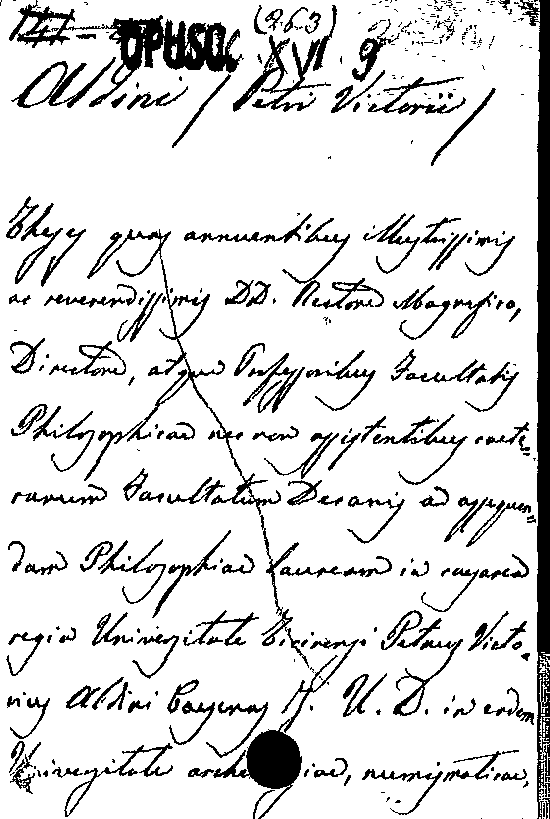 (263)
OPUSC. XVI. 9
Aldini / Petri Victorii /
Theses quas annuentibus illustrissimis
ac reverendissimis DD. Rectore Magnifico,
Directore, atque Professoribus Facultatis
Philosophicae nec non assistentibus caete„
rarum Facultatum Decanis ad assequen„
dam Philosophiae lauream in caesarea
regia Universitate Ticinensi Petrus Victo„
rius Aldini Caesenas J. U. D. in eadem
Universitate archeo giae, numismaticae,